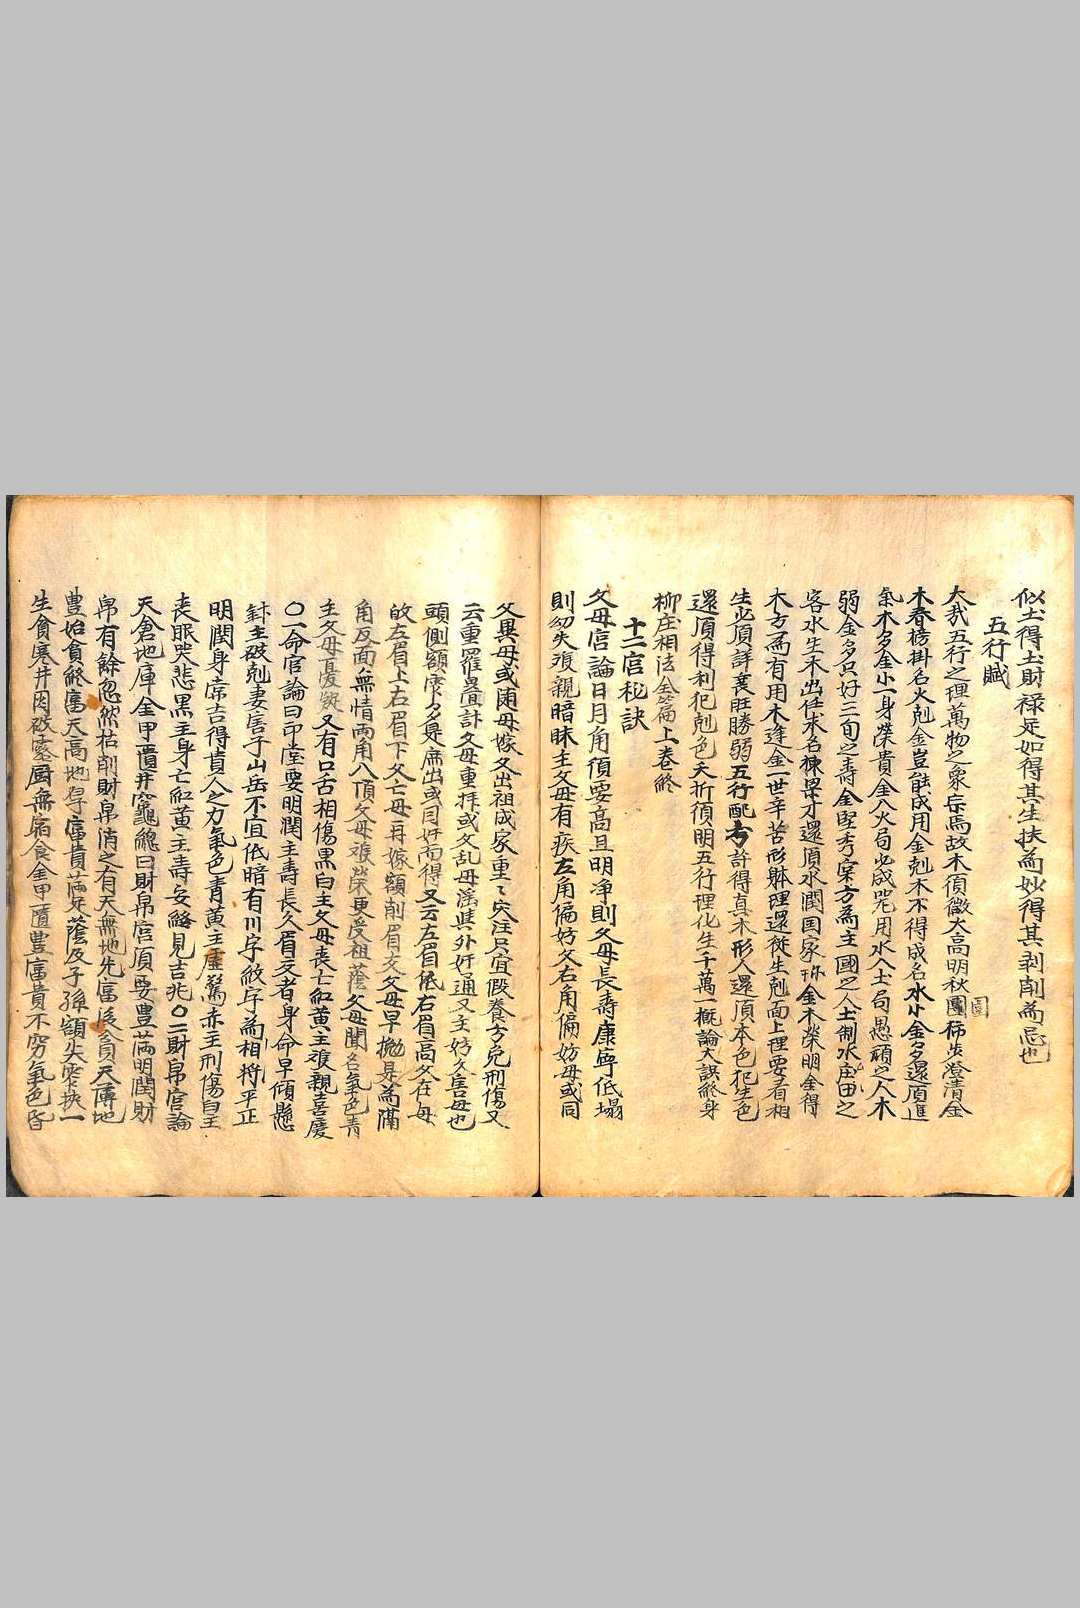 似土得土財禄足如得其生扶為妙得其剥削為忌也
五行賦
大哉五行之理萬物之象宗焉故木須微大高明秋圓怖失澄清金
圓
木春榜掛名火剋金豈能成用金剋木不得成名水小金多還須進
氣木多金小一身榮貴金入火局必成咒用水入土局愚頑之人木
弱金多只好三旬之壽金堅秀窄方為主國之人土制水庄田之
客水生木出任求名棟樑才還須水潤国家珎金木榮明金得
木方為有用木逢金一世辛苦形躰理還從生剋面上理要看相
生必須詳衰旺勝弱五行配方許得真木形人還須本色犯生色
還須得利犯剋色夭折須明五行理化生千萬一概論大誤終身
柳庄相法金篇上卷終
十二宫秘訣
父母宫論日月角須要高且明净則父母長壽康寧低塌
則幼失𩀱親暗昧主父母有疾左角偏妨父右角偏妨母或同
父異母或随母嫁父出祖成家重〻灾注只宜假養方免刑傷又
云重羅疊計父母重拜或父乱母滛與外奸通又主妨父害母也
頭側額窄多是庶出或囙奸而得又云左眉低右眉高父在母
故左眉上右眉下父亡母再嫁額削眉交父母早抛是為隔
角反面無情兩角入頂父母𩀱榮更受祖蔭父母聞名氣色青
主父母憂疑又有口舌相傷黒白主父母丧亡紅黄主𩀱親喜慶
〇一命宫論曰印堂要明潤主壽長久眉交者身命早傾懸
針主破剋妻害子山岳不宜低暗有川字紋与為相将平正
明潤身常吉得貴人之力氣色青黄主虛驚赤主刑傷白主
丧眼哭悲黒主身亡紅黄主壽安終見吉兆〇二財帛宫論
天倉地庫金甲匱井竈総曰財帛宫須要豊滿明潤財
帛有餘忽然枯削財帛消乏有天無地先富後貧天薄地
豊始貧終富天高地厚富貴滿文蔭及子孫額尖窄挟一
生貧寒井囙破露厨無宿食金甲匱豊富貴不窮氣色昏